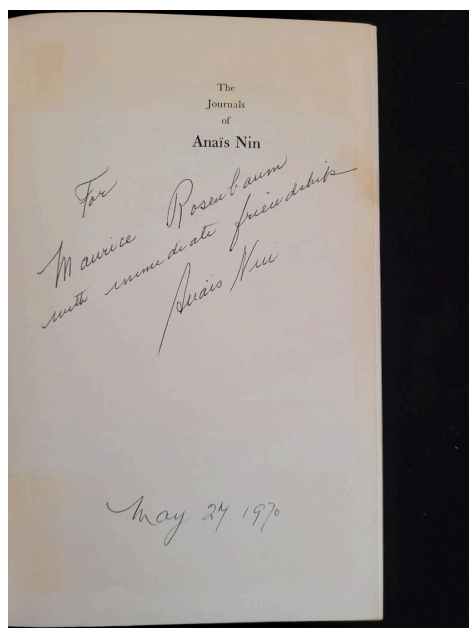 The
Journals
of
Anaïs Nin
For
Maurice Rosenbaum
with immediate friendship
Anaïs Nin
May 27 1970